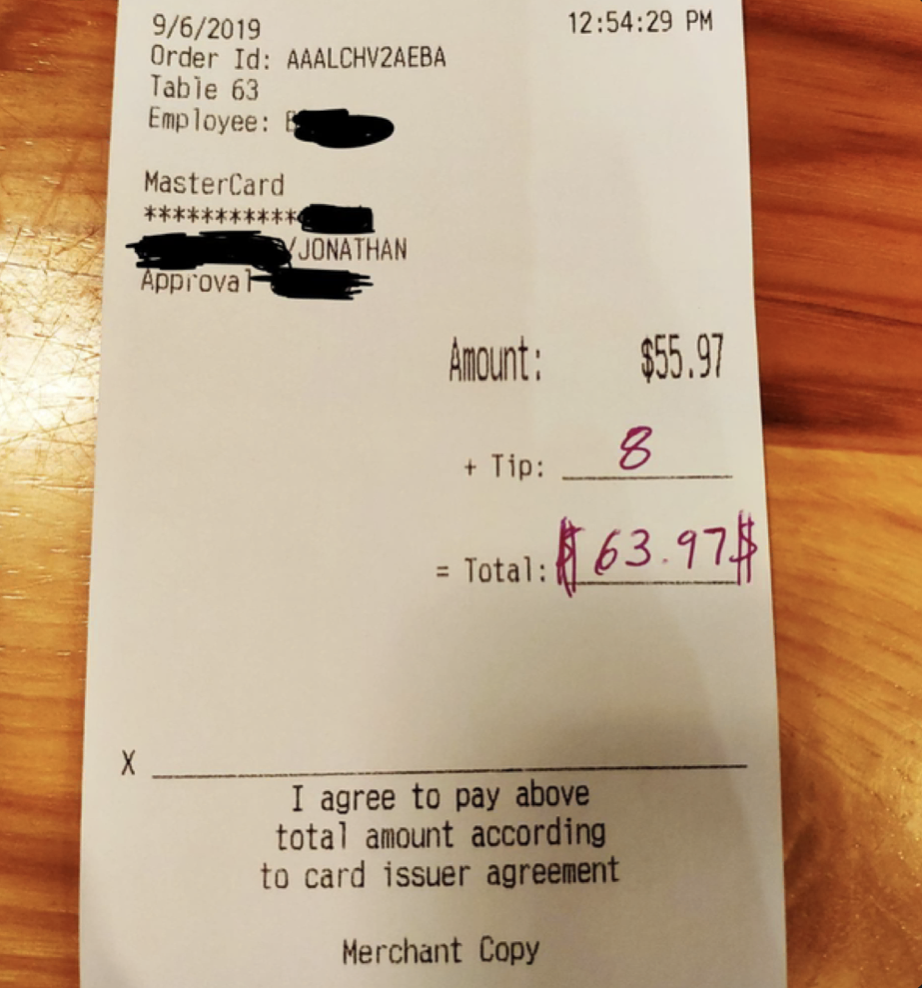 9/6/2019 12:54:29 PM
Order Id: AAALCHV2AEBA
Table 63
Employee:
MasterCard
***********
/JONATHAN
Approval
Amount: $55.97
+ Tip: 8
= Total: $ 63.97$
X
I agree to pay above
total amount according
to card issuer agreement
Merchant Copy